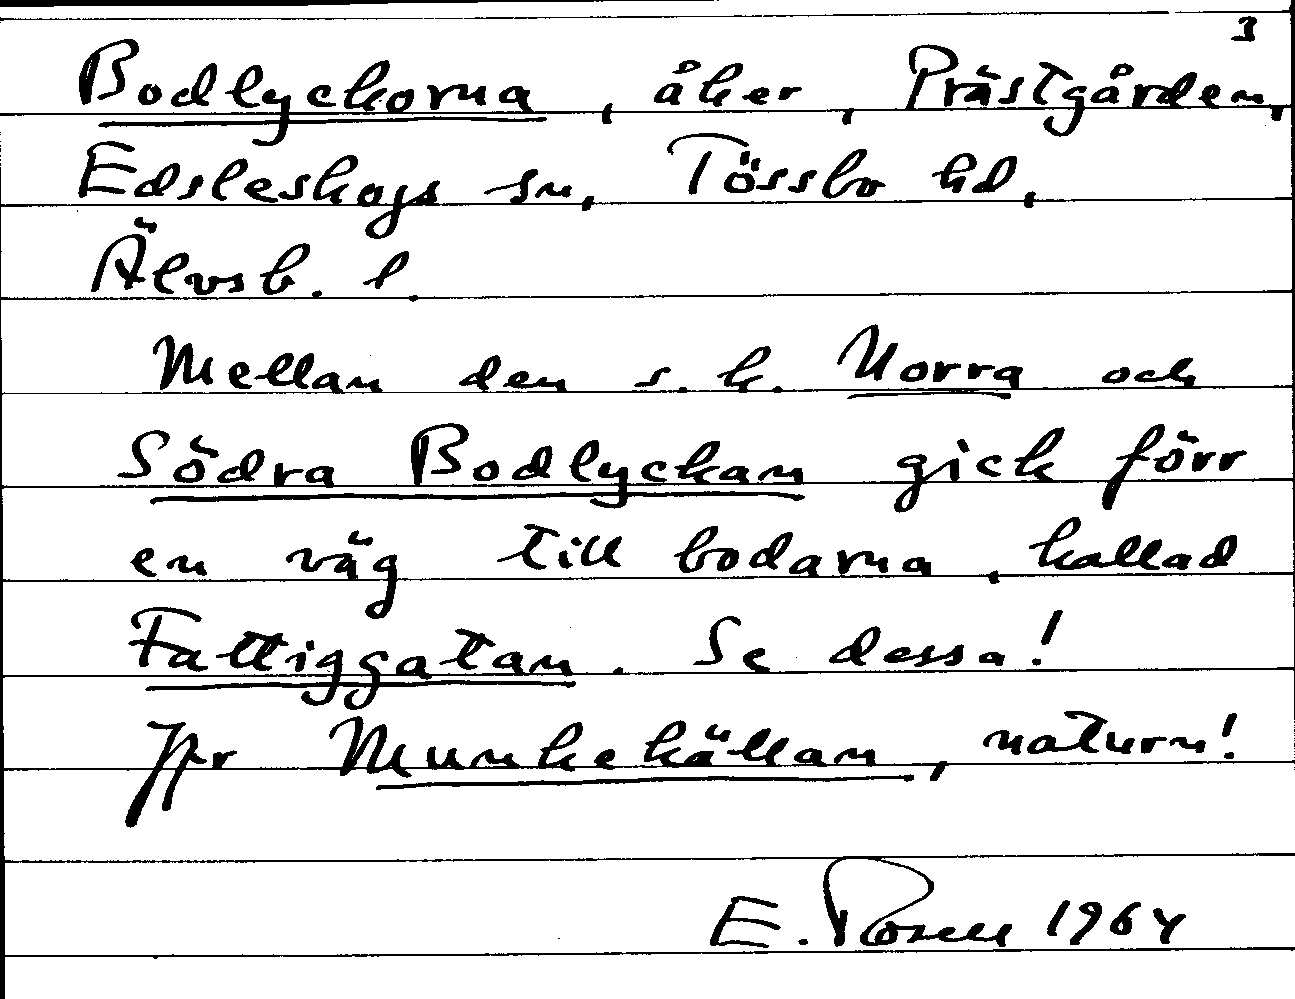 3
Bodlyckorna, åker, Prästgården,
Edsleskogs sn, Tössbo hd,
Älvsb. l.
Mellan den s. k. Norra och
Södra Bodlyckan gick förr
en väg till bodarna, kallad
Fattiggatan. Se dessa!
Jfr Munkekällan, naturn!
E. Rosell 1964